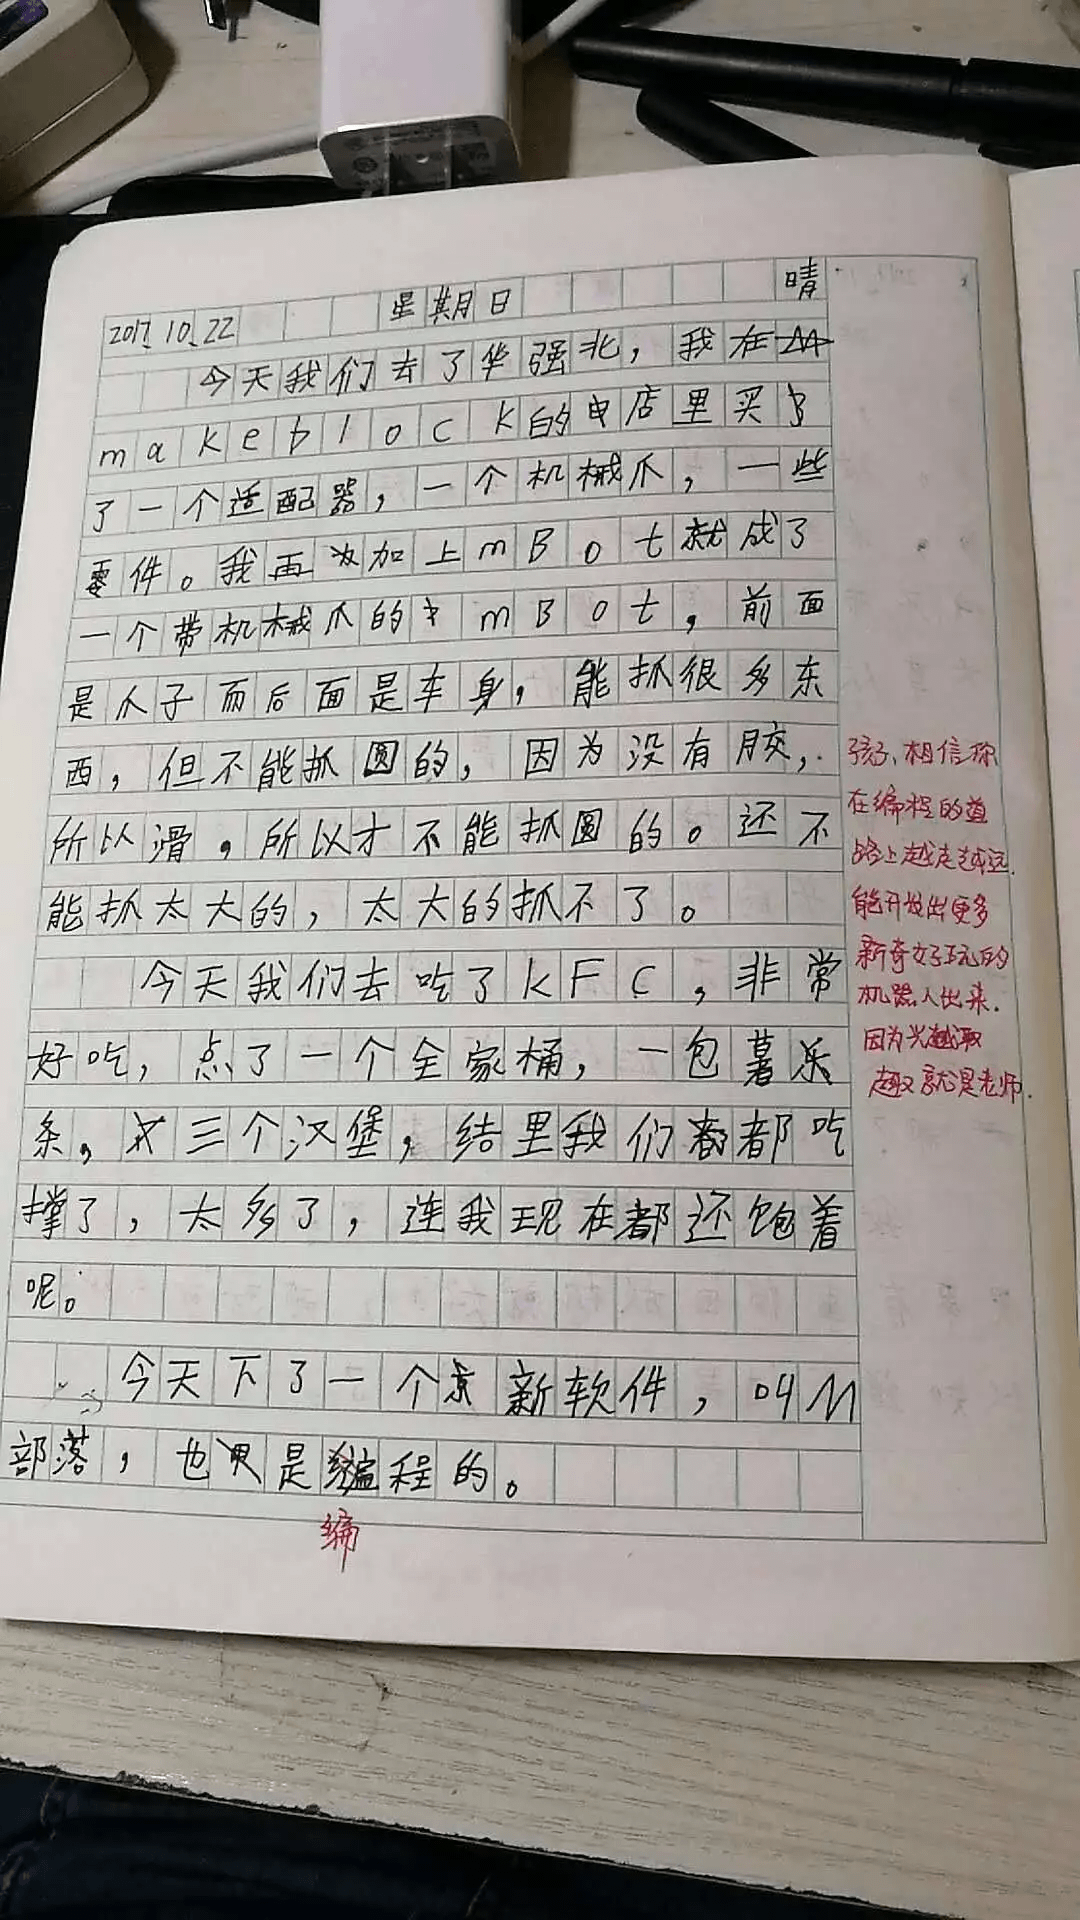 2017.10.22 星期日 晴
今天我们去了华强北，我在
makeblock的店里买
了一个适配器，一个机械爪，一些
零件。我再加上mBot就成了
一个带机械爪的mBot，前面
是爪子而后面是车身，能抓很多东
西，但不能抓圆的，因为没有胶，
所以滑，所以才不能抓圆的。还不
能抓太大的，太大的抓不了。
今天我们去吃了KFC，非常
好吃，点了一个全家桶，一包薯
条，三个汉堡，结里我们都吃
撑了，太多了，连我现在都还饱着
呢。
今天下了一个新软件，叫M
部落，也是编程的。
编
孩子，相信你
在编程的道
路上越走越远，
能开发出更多
新奇好玩的
机器人出来。
因为兴趣
就是老师.